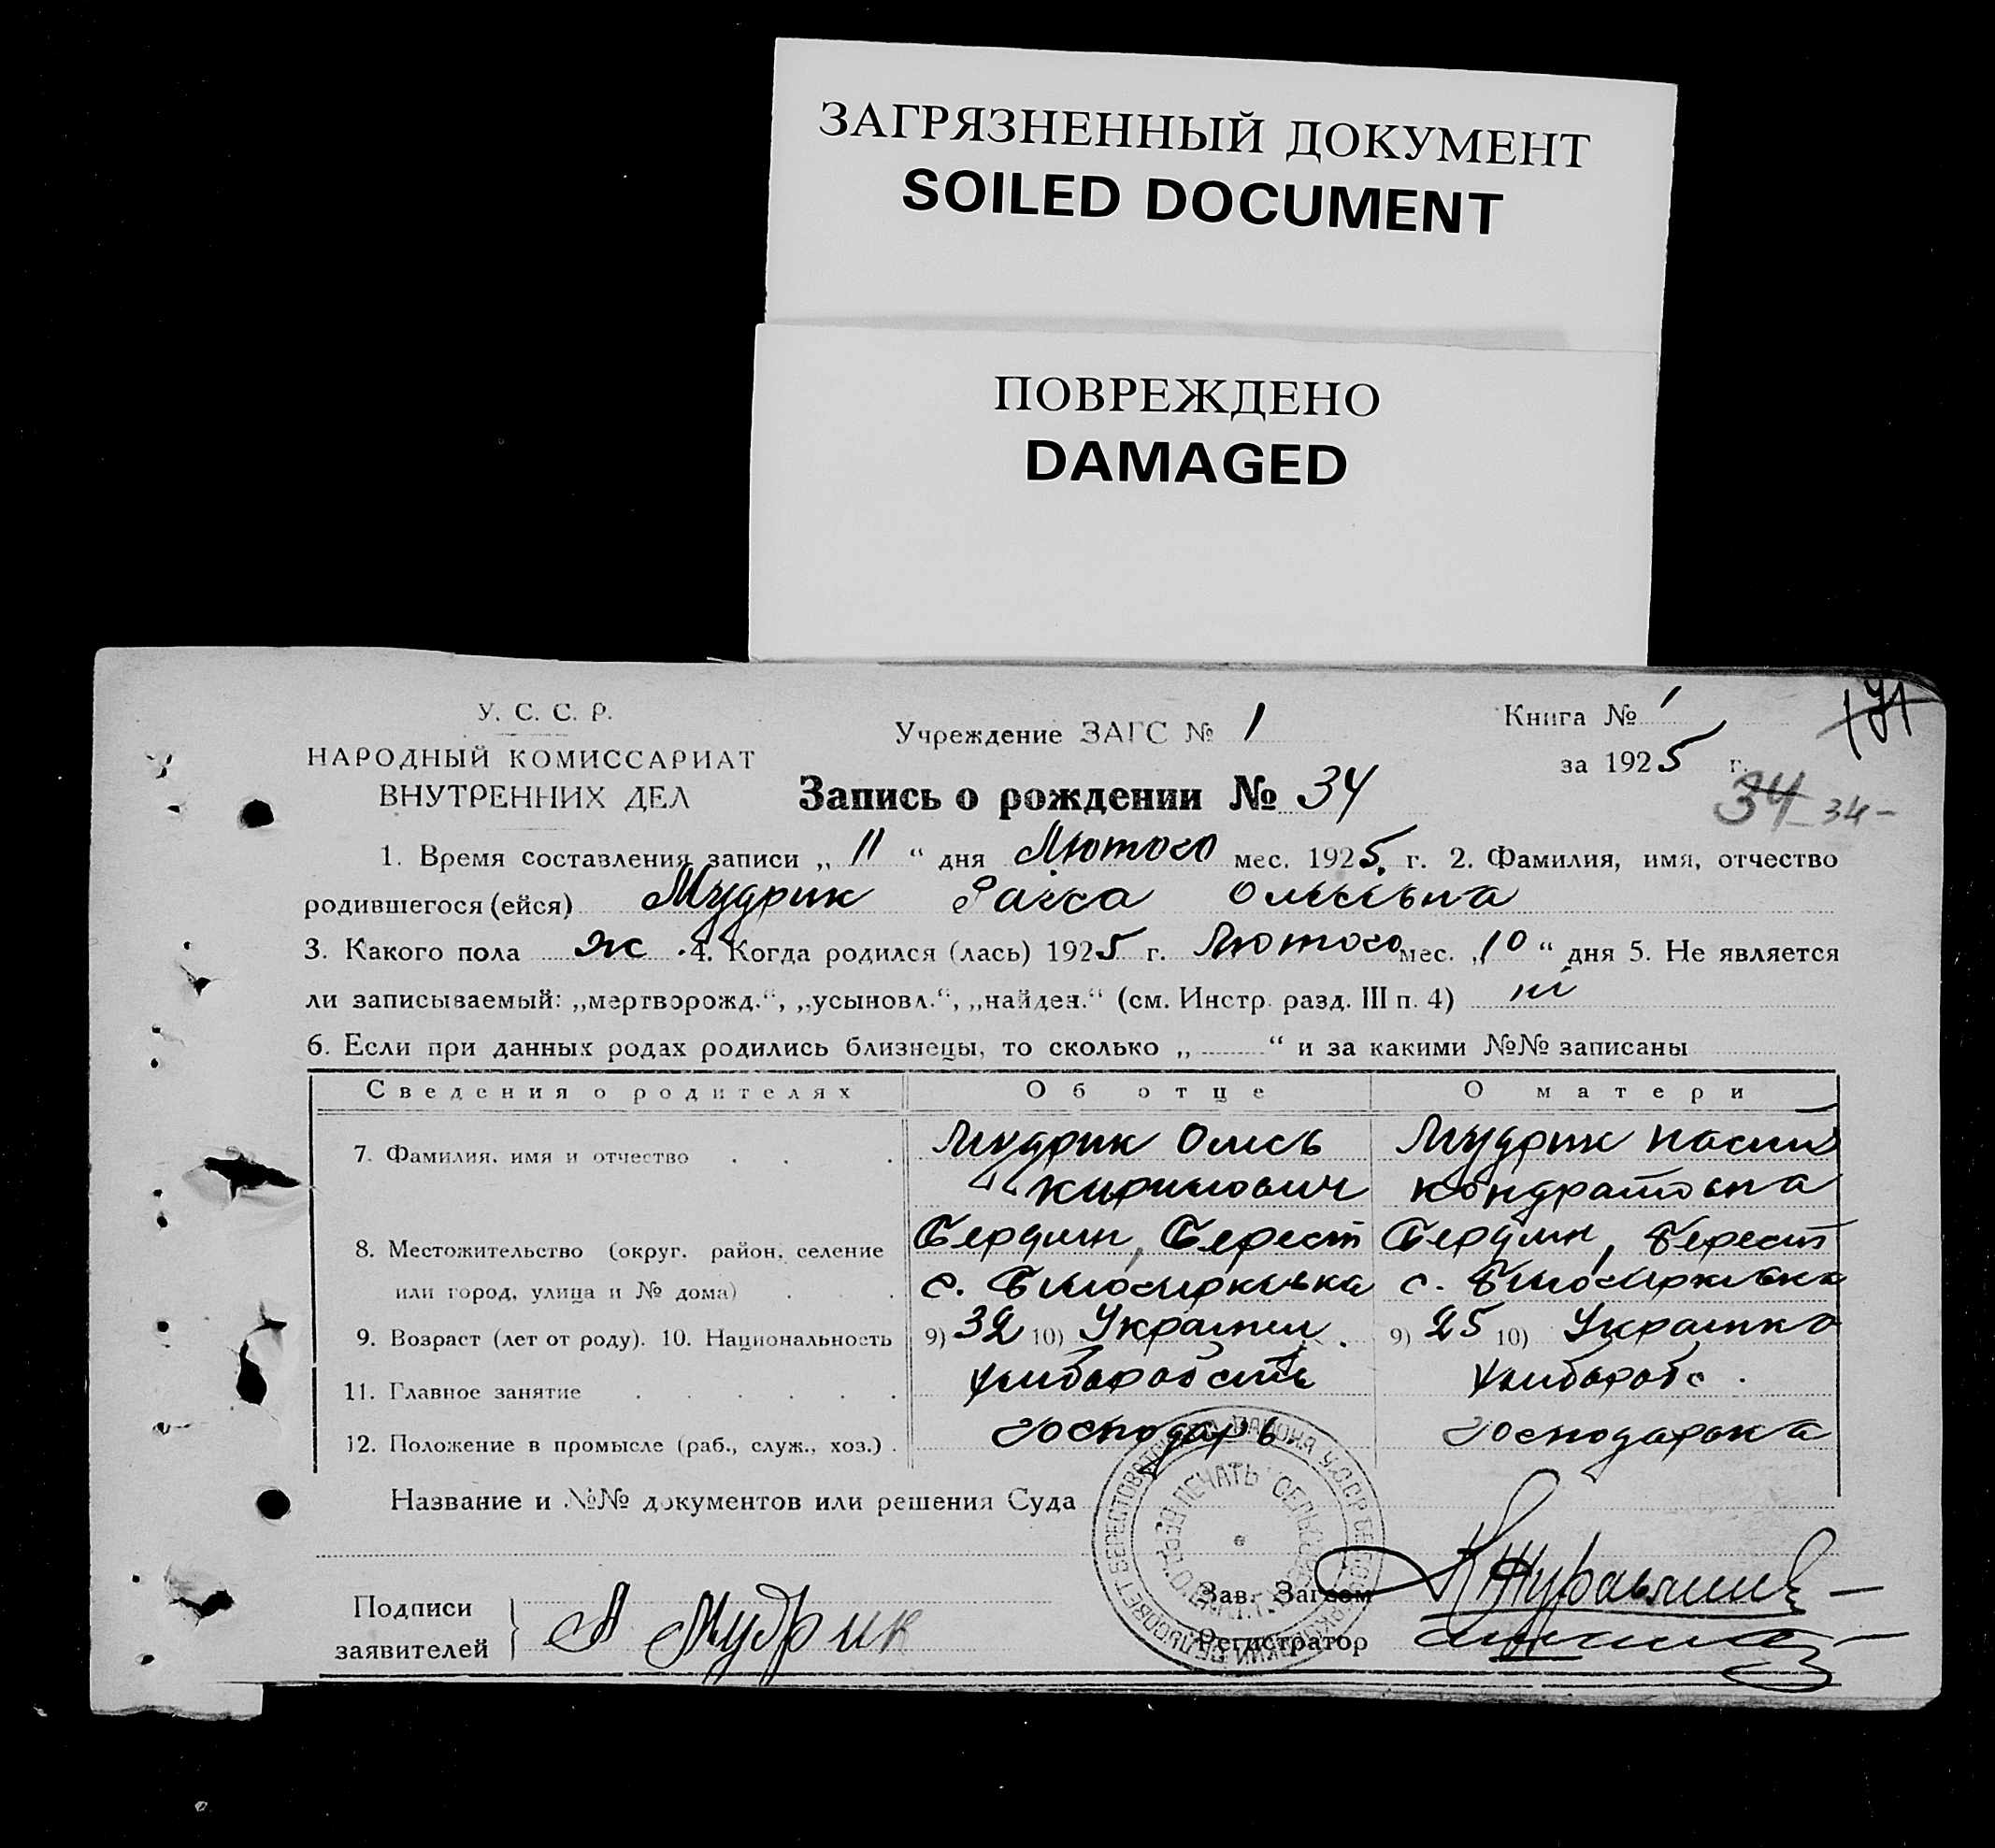 ЗАГРЯЗНЕННЫЙ ДОКУМЕНТ
SOILED DOCUMENT
ПОВРЕЖДЕНО
DAMAGED
У. С. С. Р.
НАРОДНЫЙ КОМИССАРИАТ
ВНУТРЕННИХ ДЕЛ
Учреждение ЗАГС № 1
Книга № 1
за 1925 г.
Запись о рождении № 34
34 34-
1. Время составления записи „ 11 “ дня Лютого мес. 1925 г. 2. Фамилия, имя, отчество
родившегося (ейся) Мудрик Раїса
3. Какого пола ж. 4. Когда родился (лась) 1925 г. Лютого мес. „10“ дня 5. Не является
ли записываемый: „мертворожд.“, „усыновл.“, „найден.“ (см. Инстр. разд. III п. 4) ні
6. Если при данных родах родились близнецы, то сколько „ “ и за какими №№ записаны
Сведения о родителях Об отце О матери
7. Фамилия, имя и отчество Мудрик Олисъ Кирилович Мудрик Кондратовна
8. Местожительство (округ, район, селение или город, улица и № дома) Бердян, Берест с. Билоцирківка Бердян, Берест с. Билоцирківка
9. Возраст (лет от роду). 10. Национальность 9) 32 10) Українец 9) 25 10) Українка
11. Главное занятие хлибороб
12. Положение в промысле (раб., служ., хоз.) господарь господарка
Название и №№ документов или решения Суда
Подписи
заявителей А Мудрик
Зав. Загсом
Регистратор